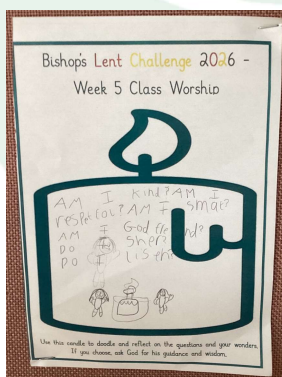 Bishop's Lent Challenge 2026 -
Week 5 Class Worship
AM I kind? AM I
AM I smat?
AM I God frend?
DO I sher?
DO I listn
Use this candle to doodle and reflect on the questions and your wonders.
If you choose, ask God for his guidance and wisdom.